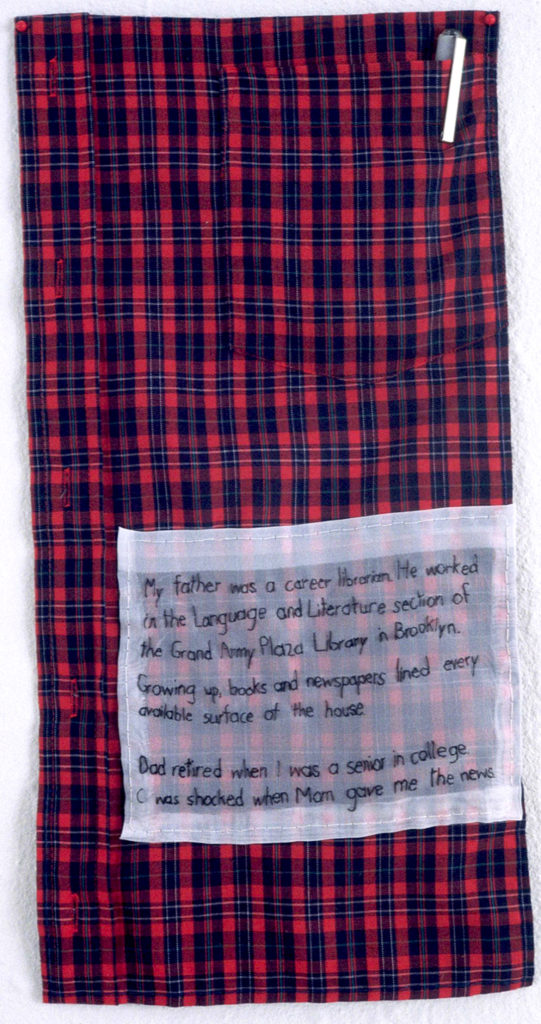 My father was a career librarian. He worked
in the Language and Literature section of
the Grand Army Plaza Library in Brooklyn.
Growing up, books and newspapers lined every
available surface of the house
Dad retired when I was a senior in college.
I was shocked when Mom gave me the news.